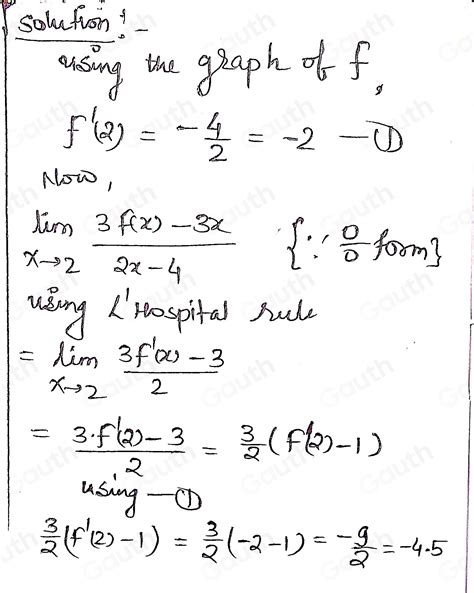 Solution :-
using the graph of f,
f'(2) = -4/2 = -2 — ①
Now,
lim x→2 (3f(x) - 3x)/(2x - 4) {∵ 0/0 form}
using L'Hospital rule
= lim x→2 (3f'(x) - 3)/2
= (3·f'(2) - 3)/2 = 3/2 (f'(2) - 1)
using — ①
3/2 (f'(2) - 1) = 3/2 (-2 - 1) = -9/2 = -4.5